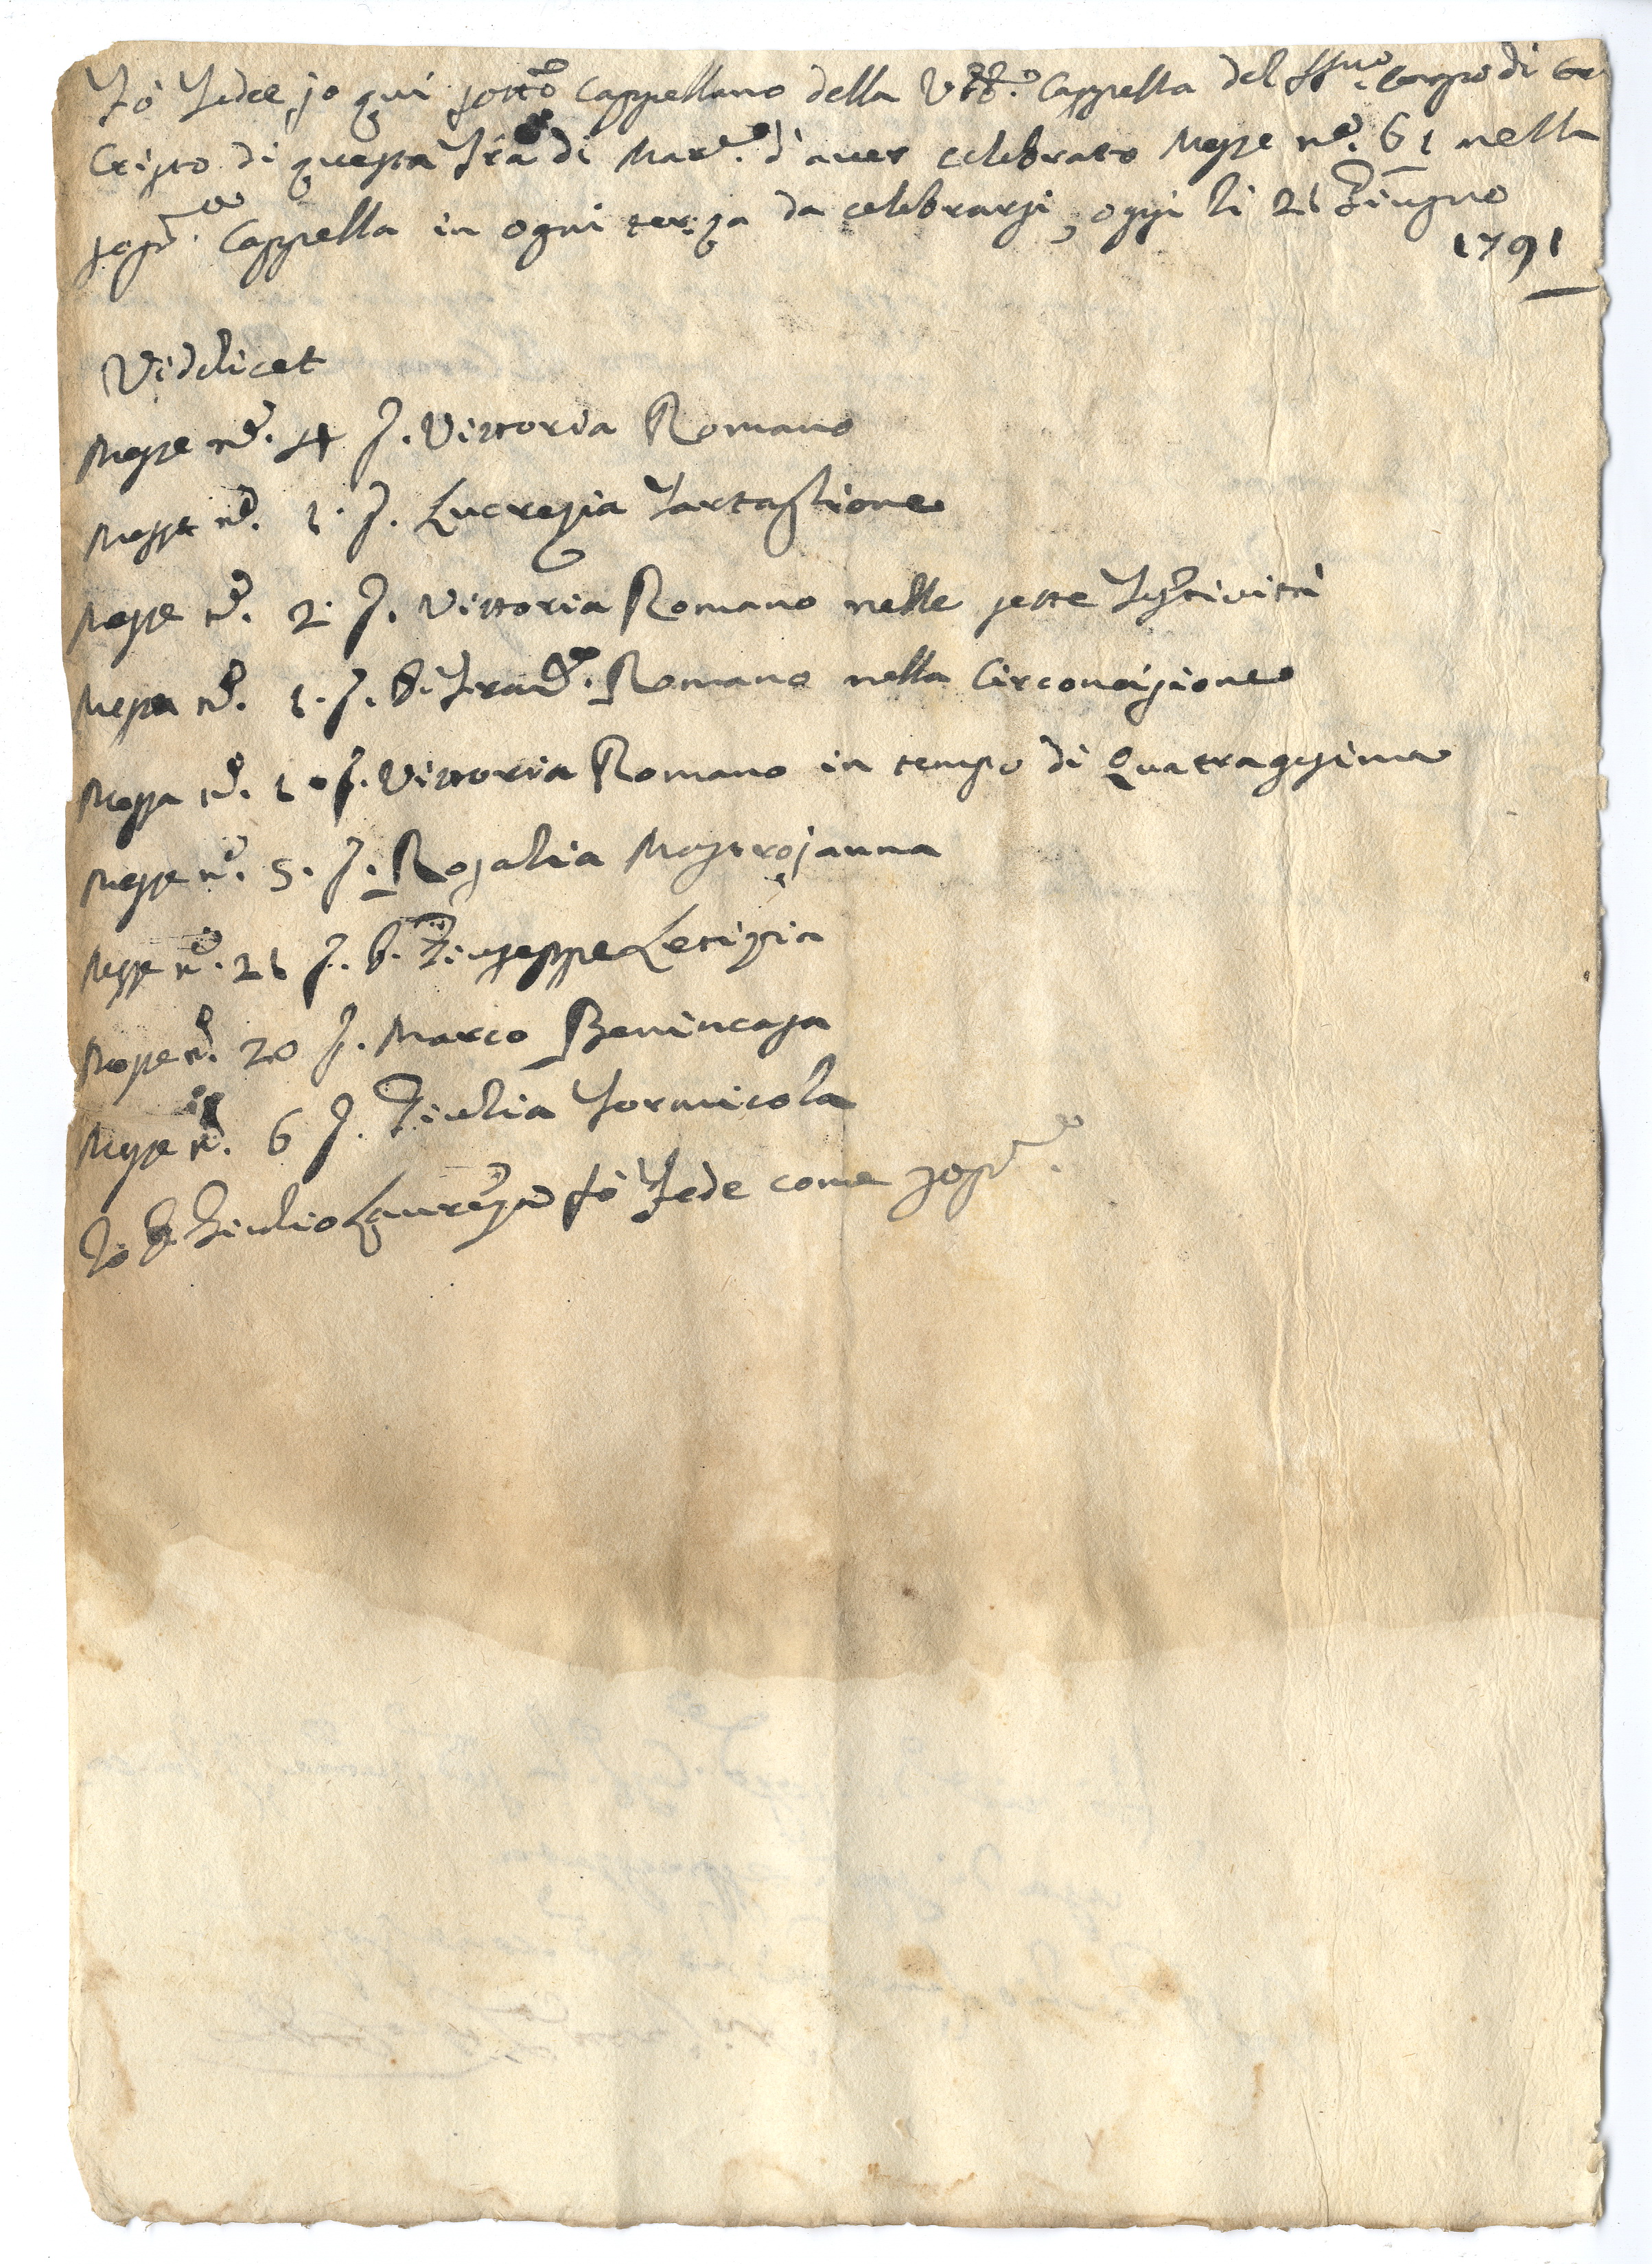 Fò Fede io qui sottō Cappellano della Cappella del SSmo Corpo di
Cristo di questa Tra di Marne. d'aver celebrato Messe no. 61 nella
sopra. Cappella in ogni terza da celebrarsi, oggi li 21 Giugno
1791
Videlicet
Messe no. 4 p. Vittoria Romano
Messe no. 1. p. Lucrezia Tartaglione
Messe no. 2. p. Vittoria Romano nelle sette Festività
Messa no. 1. p. D. Franco. Romano nella Circoncisione
Messa no. 1 p. Vittoria Romano in tempo di Quatragesima
Messe no. 5. p. Rosalia Mastrojanna
Messe no. 21 p. D. Giuseppe Letizia
Messe no. 20 p. Marco Benincasa
Messe no. 6 p. Giulia Formicola
Io D. Giulio Laurenza fò Fede come sopra.